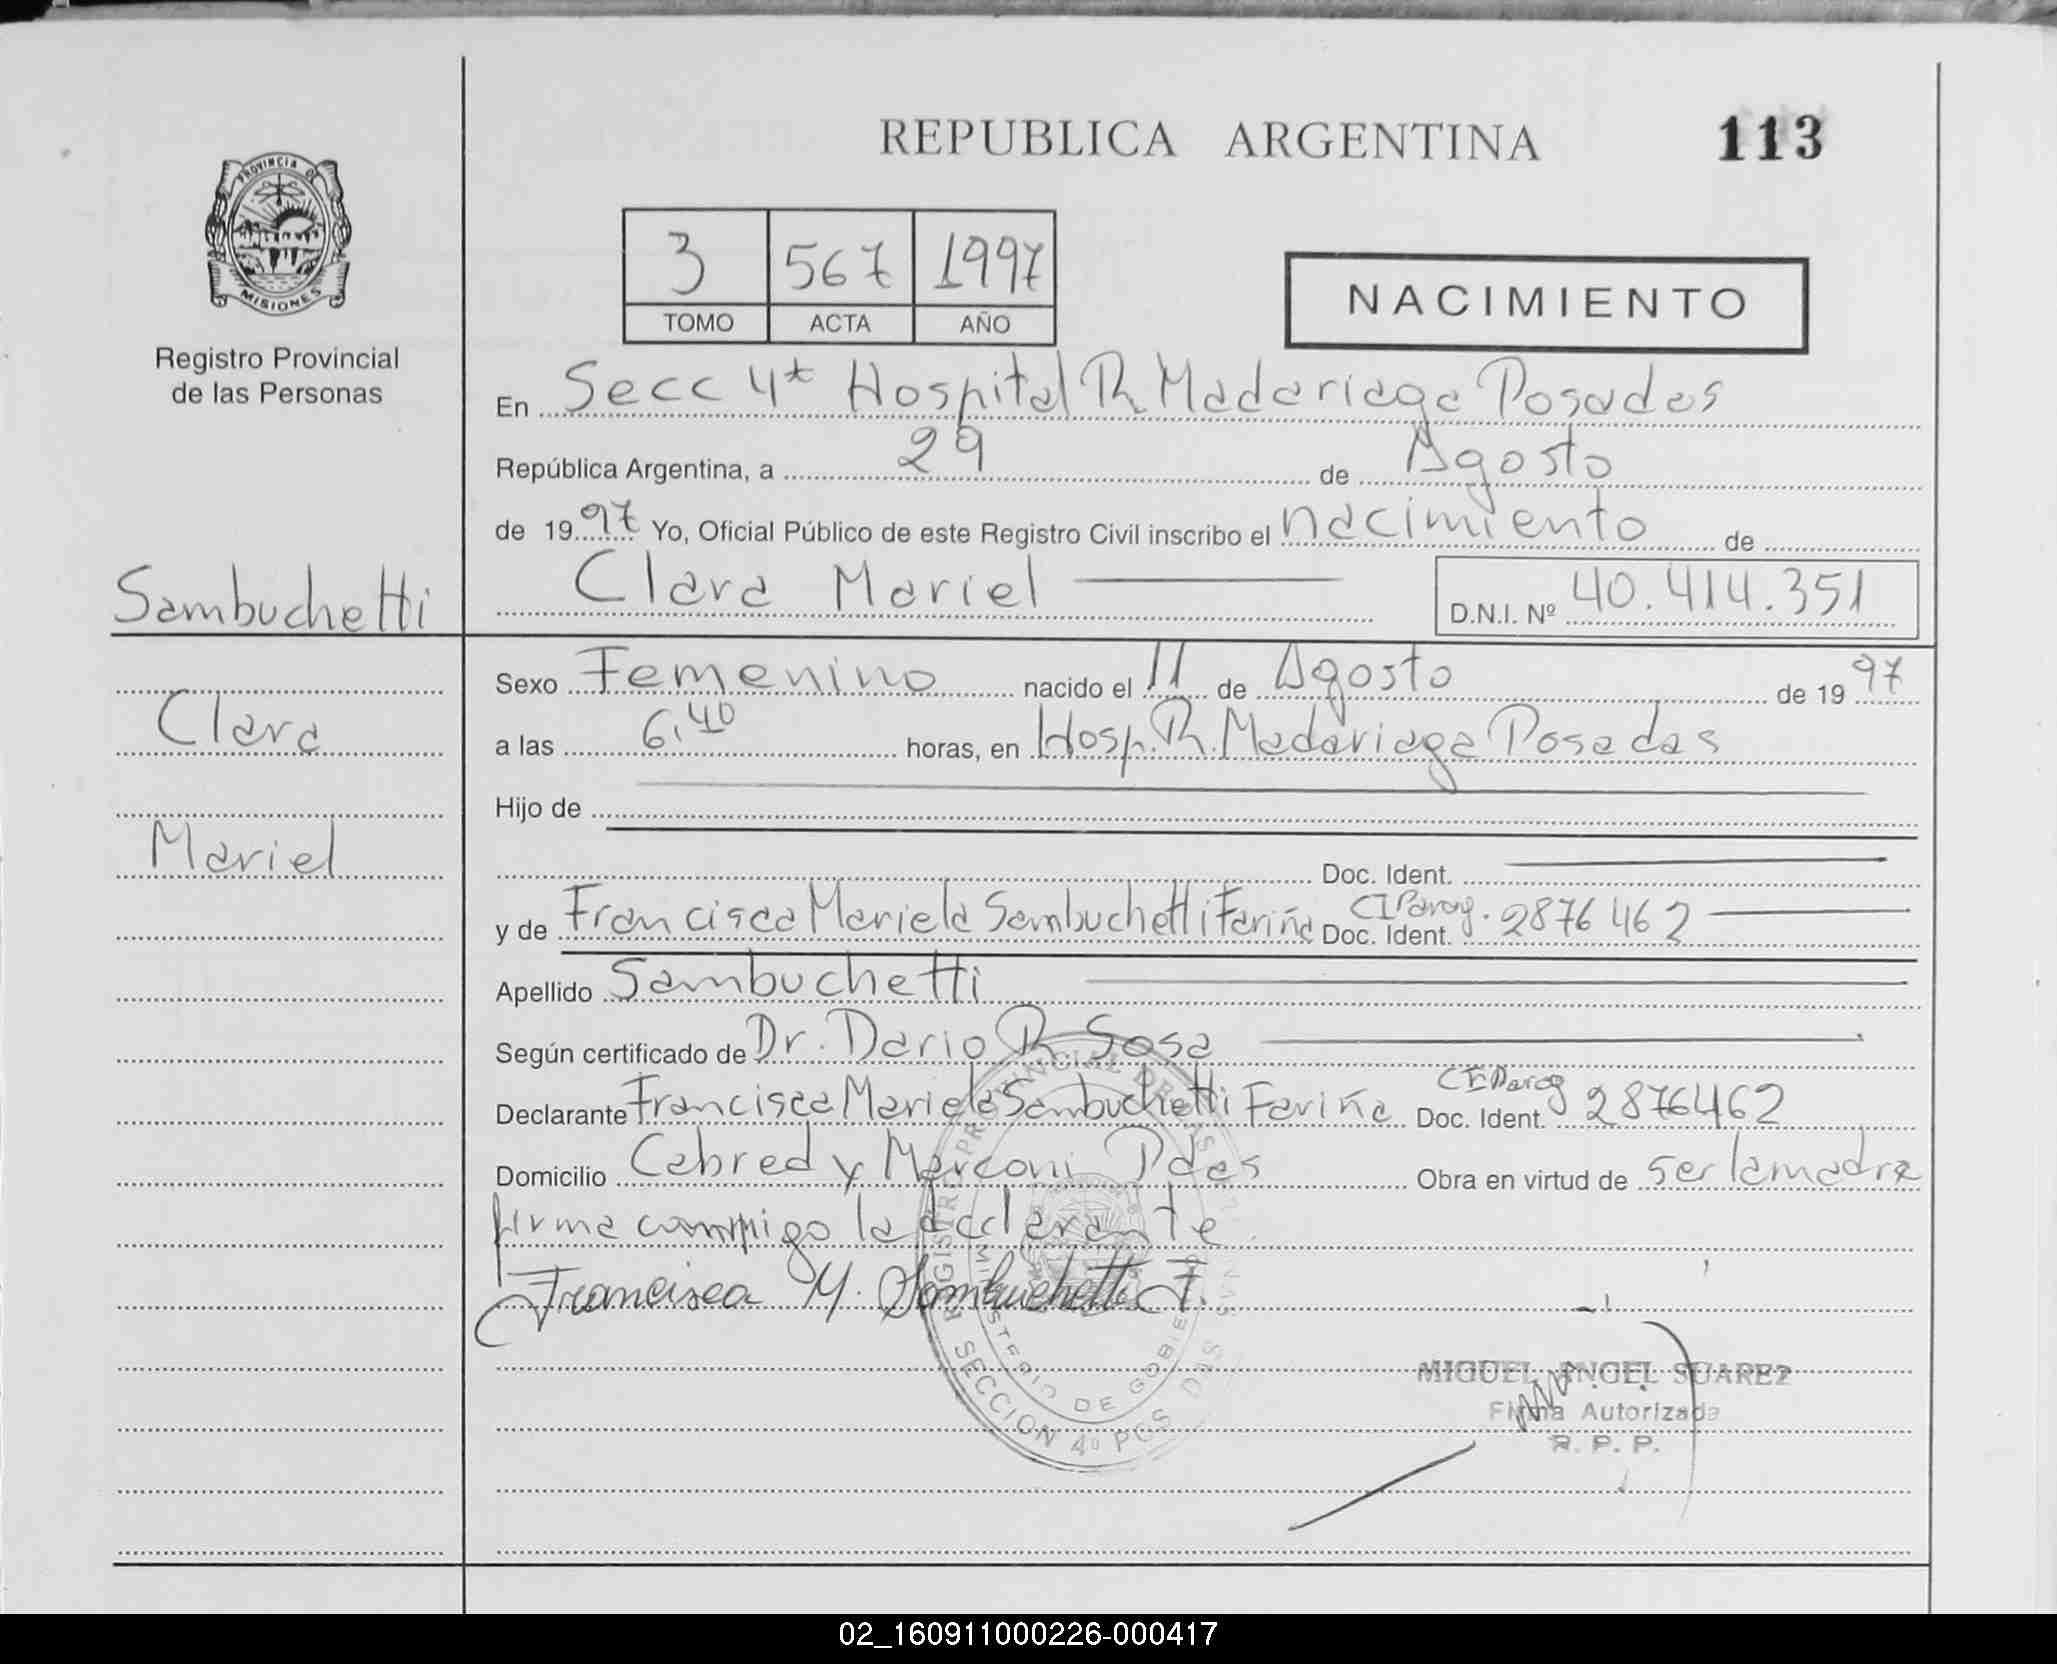 REPUBLICA ARGENTINA
113
PROVINCIA DE
MISIONES
Registro Provincial
de las Personas
3 567 1997
TOMO ACTA AÑO
NACIMIENTO
En Secc 4ta Hospital R. Madariaga Posadas
República Argentina, a 29 de Agosto
de 1997 Yo, Oficial Público de este Registro Civil inscribo el nacimiento de
Clara Mariel
D.N.I. Nº 40.414.351
Sambuchetti
Clara
Mariel
Sexo Femenino nacido el 11 de Agosto de 1997
a las 6,40 horas, en Hosp. R. Madariaga Posadas
Hijo de
Doc. Ident.
y de Francisca Mariela Sambuchetti Fariña Doc. Ident. CI Parag. 2876462
Apellido Sambuchetti
Según certificado de Dr. Dario R Sosa
Declarante Francisca Mariela Sambuchetti Fariña Doc. Ident. CI Parag 2876462
Domicilio Cabred y Marconi Pdas Obra en virtud de ser la madre
firma conmigo la declarante
Francisca M. Sambuchetti F.
REGISTRO PROVINCIAL DE LAS
MINISTERIO DE GOBIE
SECCION 4º PGS DAS
MIGUEL ANGEL SUAREZ
Firma Autorizada
R. P. P.
02_160911000226-000417